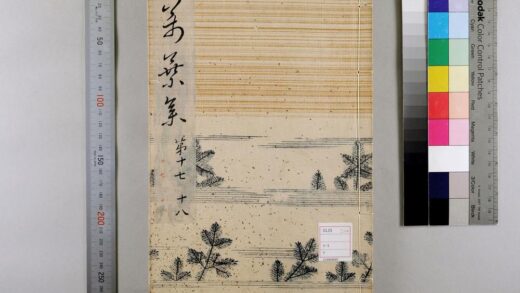 萬葉集
第十七 十八
50
100
200
250
Kodak Color Control Patches
Cyan
Green
Yellow
Red
Magenta
White
3/Color
Black